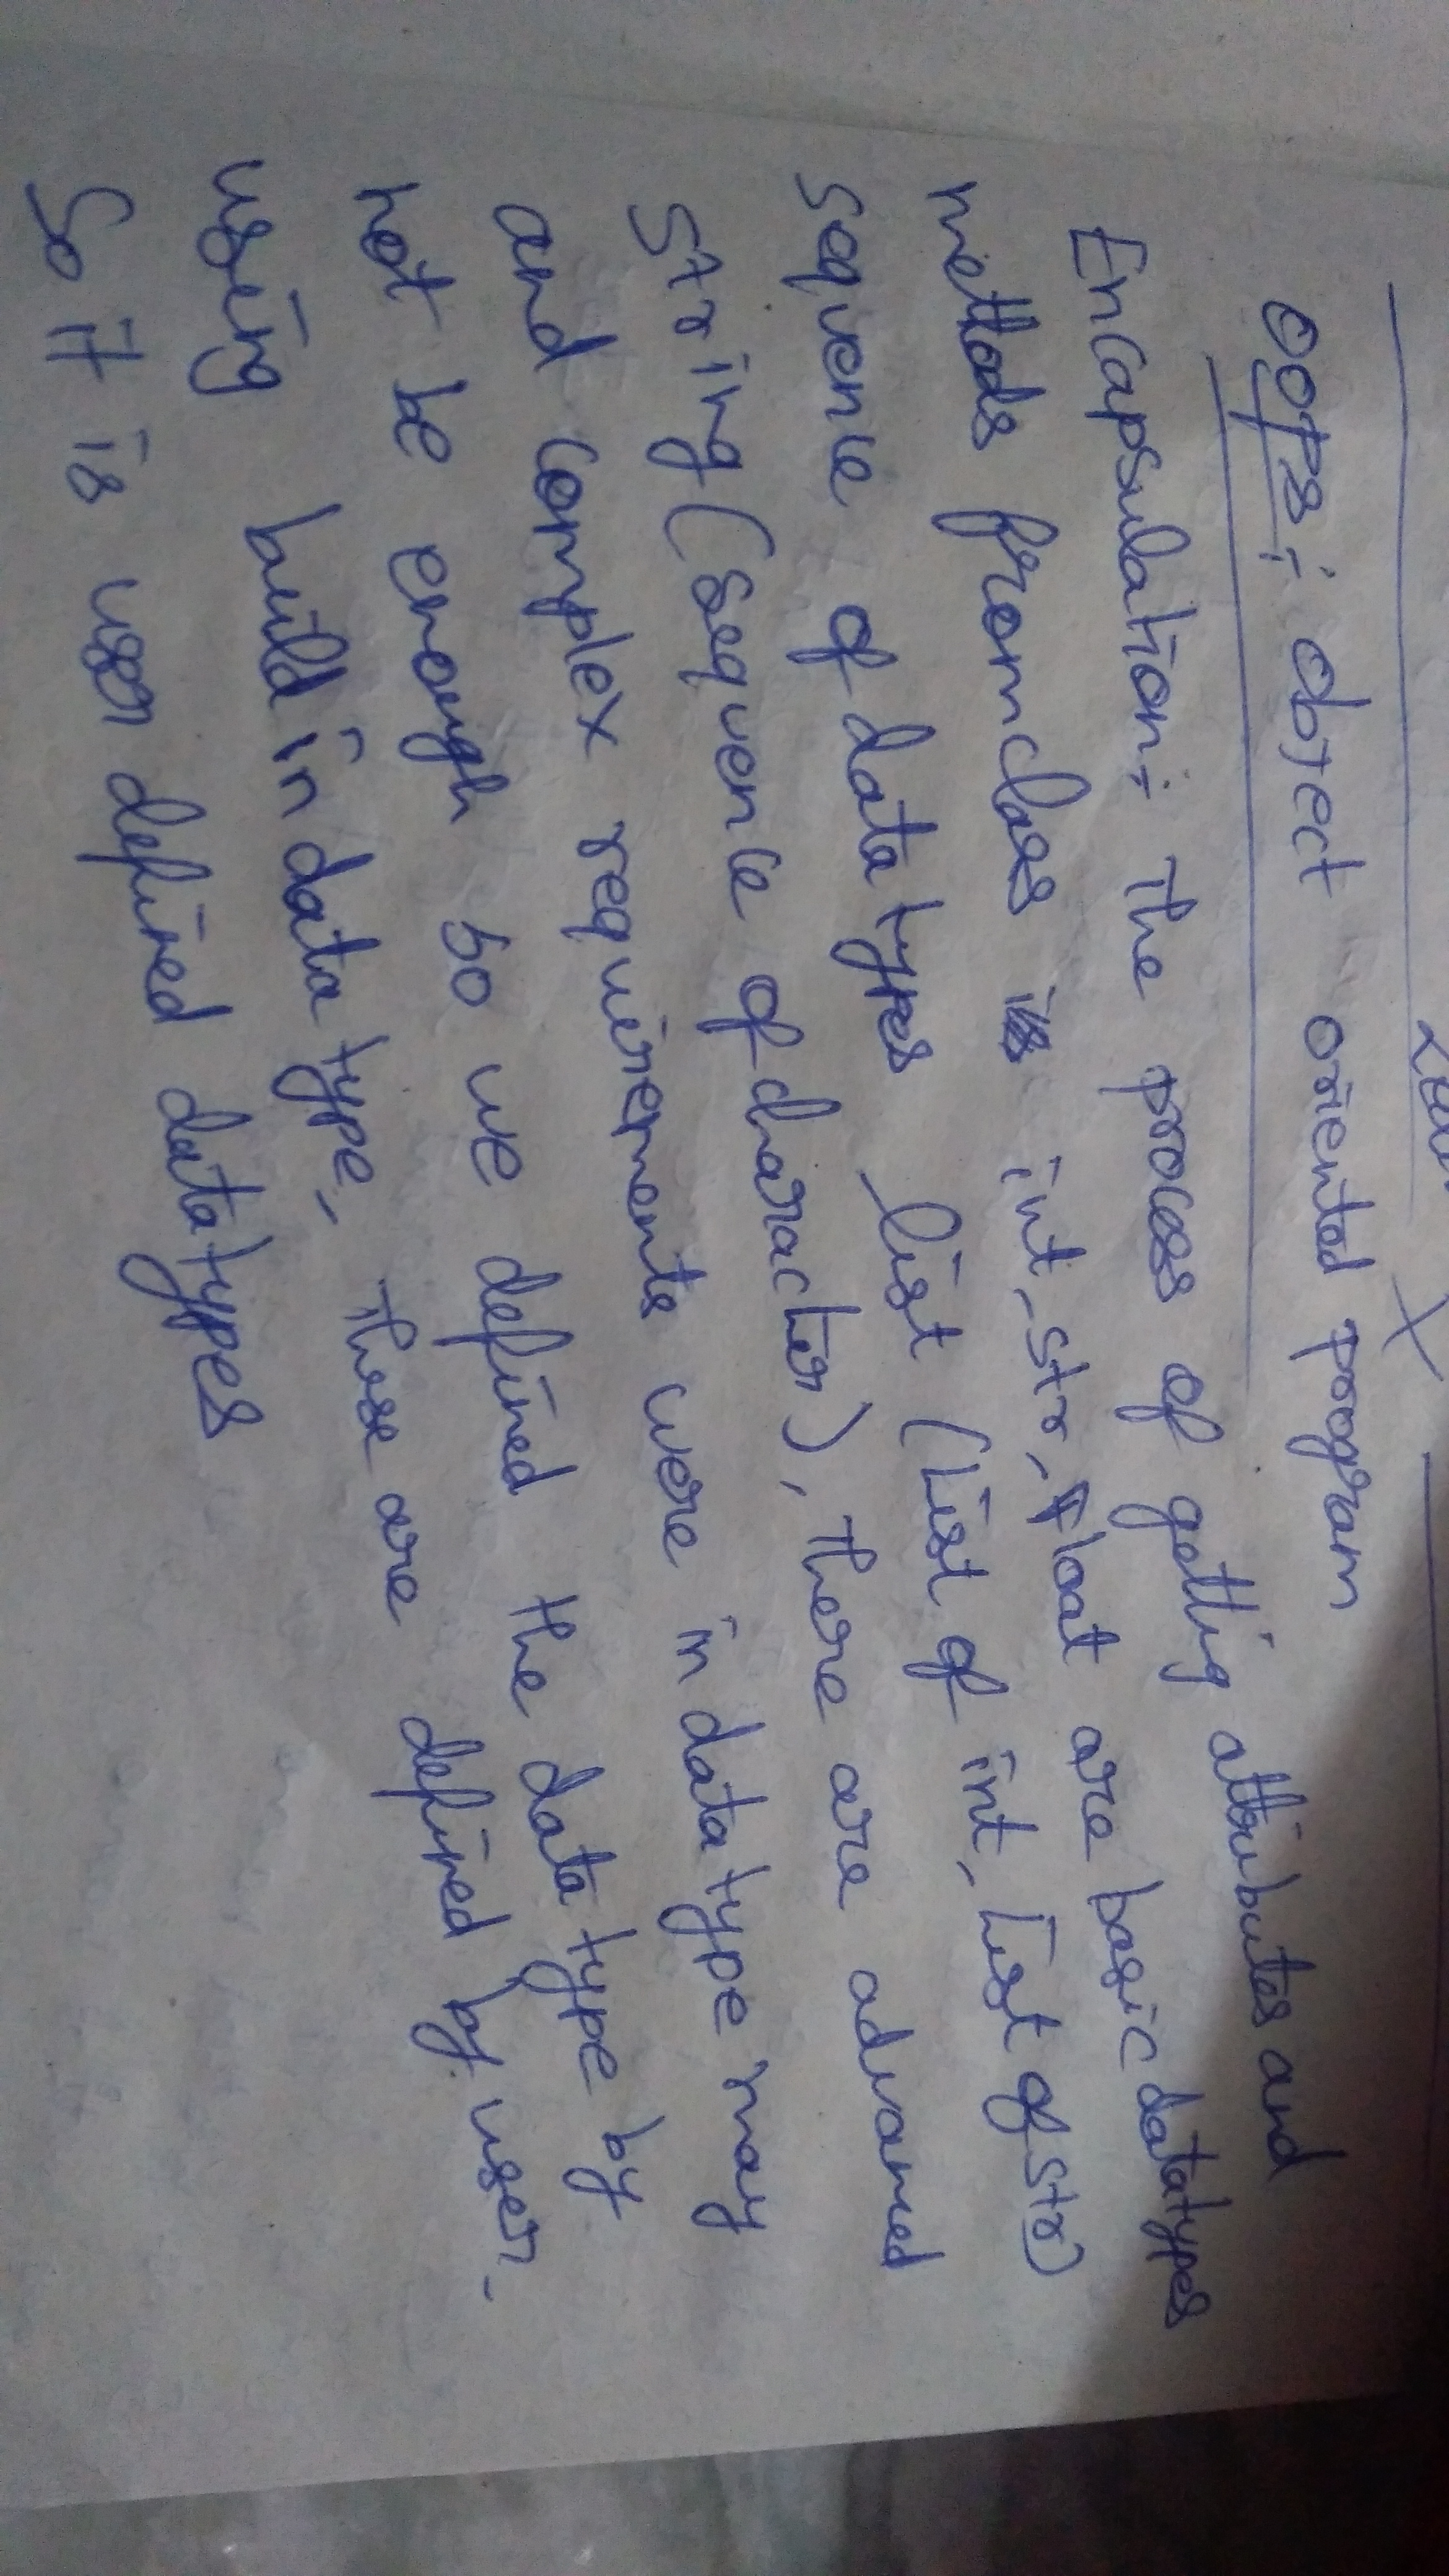 OOPS:- Object oriented program
Encapsulation:- The process of getting attributes and
methods from class int, str, float are basic datatypes
sequence of data types list (List of int, List of str)
string (sequence of character), there are advanced
and complex requirements were in data type may
not be enough so we defined the data type by
using build in data type, these are defined by user.
So it is user defined data types